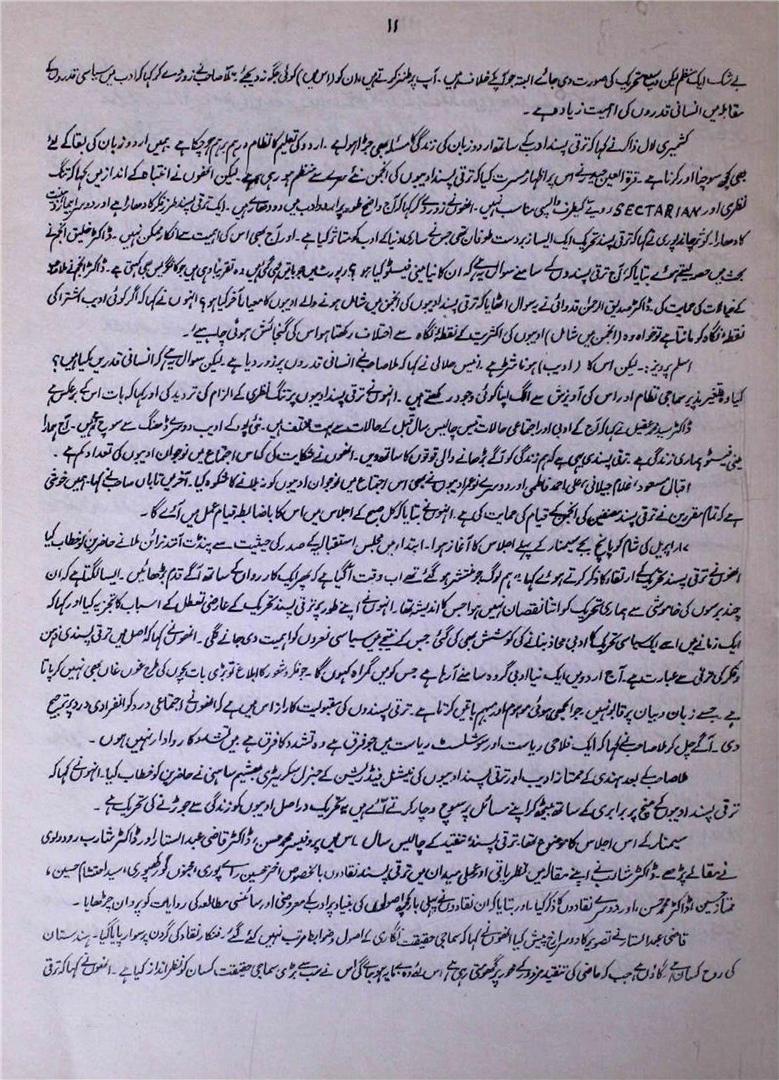 ۱۱
بے شک ایک منظم لیکن وسیع تحریک کی صورت دی جائے البتہ جو آپکے خلاف ہیں۔ آپ پر طنز کرتے ہیں، ان کو (اس میں) کوئی جگہ نہ دیجئے، ملّا صاحب نے زور دے کر کہا کہ ادب میں سیاسی قدروں کے
مقابلہ میں انسانی قدروں کی اہمیت زیادہ ہے۔
کشمیری لال ذاکر نے کہا کہ ترقی پسند ادب کے ساتھ اردو زبان کی زندگی کا مسئلہ بھی جڑا ہوا ہے۔ اردو کی تعلیم کا نظام درہم برہم ہو چکا ہے ہمیں اردو زبان کی بقا کے لئے
بھی کچھ سوچنا اور کرنا ہے۔ قرۃ العین حیدر نے اس پر اظہار مسرت کیا کہ ترقی پسند ادیبوں کی انجمن نئے سرے سے منظم ہو رہی ہے۔ لیکن انھوں نے انتباہ کے انداز میں کہا کہ تنگ
نظری اور SECTARIAN رویے کیطرف واپسی مناسب نہیں۔ انھوں نے زور دے کر کہا کہ آج واضح طور پر اردو ادب میں دو دھارے ہیں۔ ایک ترقی پسند طرز فکر کا دھارا ہے اور دوسرا
کا دھارا۔ کوثر چاندپوری نے کہا کہ ترقی پسند تحریک ایک ایسا زبردست طوفان تھی جس نے ساری دنیا کے ادب کو متاثر کیا ہے۔ اور آج بھی اس کی اہمیت سے انکار ممکن نہیں۔ ڈاکٹر خلیق انجم نے
بحث میں حصہ لیتے ہوئے بتایا کہ آج ترقی پسندوں کے سامنے سوال یہ ہے کہ ان کا نیا مینی فیسٹو کیا ہو؟ رپورٹ میں جو باتیں کہی گئی ہیں وہ تقریباً وہی ہیں جو کانگریس بھی کہتی ہے۔ ڈاکٹر انجم نے ملا صاحب
کے خیالات کی حمایت کی۔ ڈاکٹر صدیق الرحمٰن قدوائی نے یہ سوال اٹھایا کہ ترقی پسند ادیبوں کی انجمن میں شامل ہونے والے ادیبوں کا معیار آخر کیا ہو؟ انہوں نے کہا کہ اگر کوئی ادیب اشتراکی
نقطۂ نگاہ کو مانتا ہے تو خواہ وہ (انجمن میں شامل) ادیبوں کی اکثریت کے نقطۂ نگاہ سے اختلاف رکھتا ہو اس کی گنجائش ہونی چاہیے!
اسلم پرویز:۔ لیکن اس کا (ادیب) ہونا شرط ہے، انیس جلالی نے کہا کہ ملا صاحب نے انسانی قدروں پر زور دیا ہے۔ لیکن سوال یہ ہے کہ انسانی قدریں کیا ہیں؟
کیا وہ تغیر پذیر سماجی نظام اور اس کی آویزش سے الگ اپنا کوئی وجود رکھتے ہیں۔ انہوں نے ترقی پسند ادیبوں پر تنگ نظری کے الزام کی تردید کی اور کہا کہ بات اس کے برعکس ہے
ڈاکٹر سید محمد عقیل نے کہا کہ آج کے ادبی اور اجتماعی حالات تیس چالیس سال قبل کے حالات سے بہت مختلف ہیں۔ نئی پود کے ادیب دوسرے ڈھنگ سے سوچتے ہیں۔ آج ہمارا
مینی فیسٹو ہماری زندگی ہے۔ ترقی پسندی یہی ہے کہ ہم زندگی کو آگے بڑھانے والی قوتوں کا ساتھ دیں۔ انھوں نے شکایت کی کہ اس اجتماع میں نوجوان ادیبوں کی تعداد کم ہے۔
اقبال مسعود، غلام جیلانی، علی احمد فاطمی اور دوسرے نوعمر ادیبوں نے بھی اس اجتماع میں نوجوان ادیبوں کو نہ بلانے کا شکوہ کیا۔ آخر میں تاباں صاحب نے کہا، ہمیں خوشی
ہے کہ تمام مقررین نے ترقی پسند مصنفین کی انجمن کے قیام کی حمایت کی ہے۔ انہوں نے بتایا کہ کل صبح کے اجلاس میں اس کا باضابطہ قیام عمل میں آئے گا۔
اپریل کی شام کو پانچ بجے سیمنار کے پہلے اجلاس کا آغاز ہوا۔ ابتدا میں مجلس استقبالیہ کے صدر کی حیثیت سے پنڈت آنند نرائن ملا نے حاضرین کو خطاب کیا
انھوں نے ترقی پسند تحریک کے ارتقا کا ذکر کرتے ہوئے کہا "ہم لوگ جو منتشر ہو گئے تھے اب وقت آگیا ہے کہ پھر ایک کارواں کے ساتھ آگے قدم بڑھائیں۔ ایسا لگتا ہے کہ ان
چند برسوں کی خاموشی سے ہماری تحریک کو اتنا نقصان نہیں ہوا جس کا اندیشہ تھا۔ انہوں نے اپنے طور پر ترقی پسند تحریک کے عارضی تعطل کے اسباب کا تجزیہ کیا اور کہا کہ
ایک زمانے میں اسے ایک سیاسی تحریک کا ادبی محاذ بنانے کی کوشش بھی کی گئی جس کے نتیجے میں سیاسی نعروں کو اہمیت دی جانے لگی۔ انھوں نے کہا کہ اصل میں ترقی پسندی ذہن
و فکر کی ترقی سے عبارت ہے۔ آج اردو میں ایک نیا ادبی گروہ سامنے آرہا ہے جس کو میں گمراہ کہوں گا۔ جو فکر و شعور کا ابلاغ تو بڑی بات بچوں کی طرح غوں غاں بھی نہیں کر پاتا
ہے۔ جسے زبان و بیان پر قابو نہیں جو الجھی ہوئی موہوم اور مبہم باتیں کرتا ہے۔ ترقی پسندوں کی مقبولیت کا راز اس میں ہے کہ انھوں نے اجتماعی درد کو انفرادی درد پر ترجیح
دی۔ آگے چل کر ملا صاحب نے کہا کہ ایک فلاحی ریاست اور سوشلسٹ ریاست میں جو فرق ہے وہ تشدد کا فرق ہے میں تشدد کا روادار نہیں ہوں۔
ملا صاحب کے بعد ہندی کے ممتاز ادیب اور ترقی پسند ادیبوں کی نیشنل فیڈریشن کے جنرل سکریٹری بھیشم ساہنی نے حاضرین کو خطاب کیا۔ انہوں نے کہا کہ
ترقی پسند ادیبوں کے منچ پر برابری کے ساتھ بیٹھ کر اپنے مسائل پر سوچ وچار کرتے آئے ہیں یہ تحریک دراصل ادیبوں کو زندگی سے جوڑنے کی تحریک ہے۔
سیمنار کے اس اجلاس کا موضوع تھا، ترقی پسند تنقید کے چالیس سال۔ اس میں پروفیسر محمد حسن، ڈاکٹر قاضی عبدالستار اور ڈاکٹر شارب ردولوی
نے مقالے پڑھے۔ ڈاکٹر شارب نے اپنے مقالہ میں نظریاتی اور عملی میدان میں ترقی پسند نقادوں بالخصوص اختر حسین رائے پوری، مجنوں گورکھپوری، سید احتشام حسین،
ممتاز حسین، ڈاکٹر محمد حسن، اور دوسرے نقادوں کا ذکر کیا، اور بتایا کہ ان نقادوں نے پہلی بار کچھ اصولوں کی بنیاد پر ادب کے معروضی اور سائنسی مطالعہ کی روایات کو پروان چڑھایا۔
قاضی عبدالستار نے تصویر کا دوسرا رخ پیش کیا انھوں نے کہا کہ سماجی حقیقت نگاری کے اصول و ضوابط مرتب نہیں کئے گئے۔ فنکار نقاد کی گردن پر سوار پایا گیا۔ ہندستان
کی روح کسان ہے گاؤں ہے جب کہ ماضی کی تنقید مزدور کے محور پر گھومتی رہی ہے اس لئے وہ بے جا گئی اس نے سب سے بڑی سماجی حقیقت کسان کو نظر انداز کیا ہے۔ انھوں نے کہا کہ ترقی